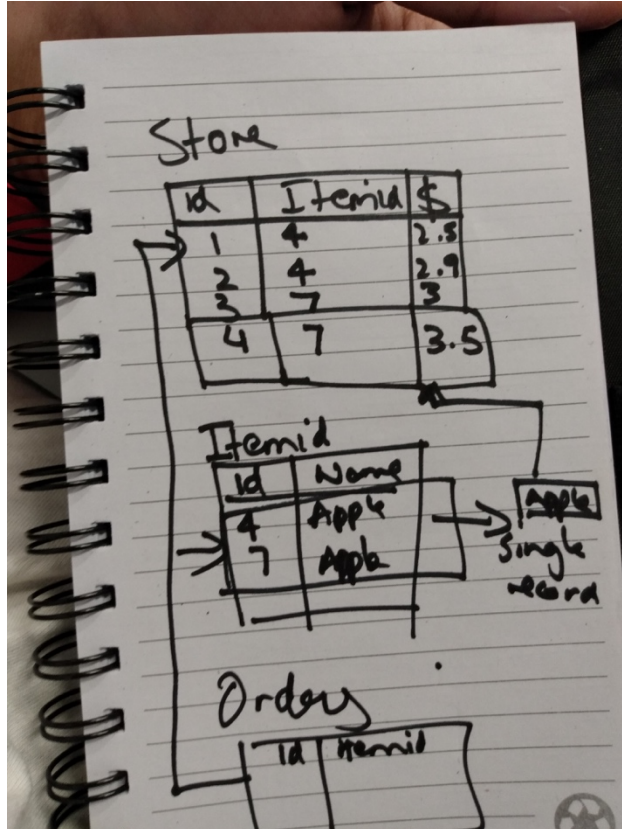 Store
id Itemid $
1 4 2.5
2 4 2.9
3 7 3
4 7 3.5
Itemid
id Name
4 Apple
7 Apple
Apple
Single
record
Orders
id Itemid